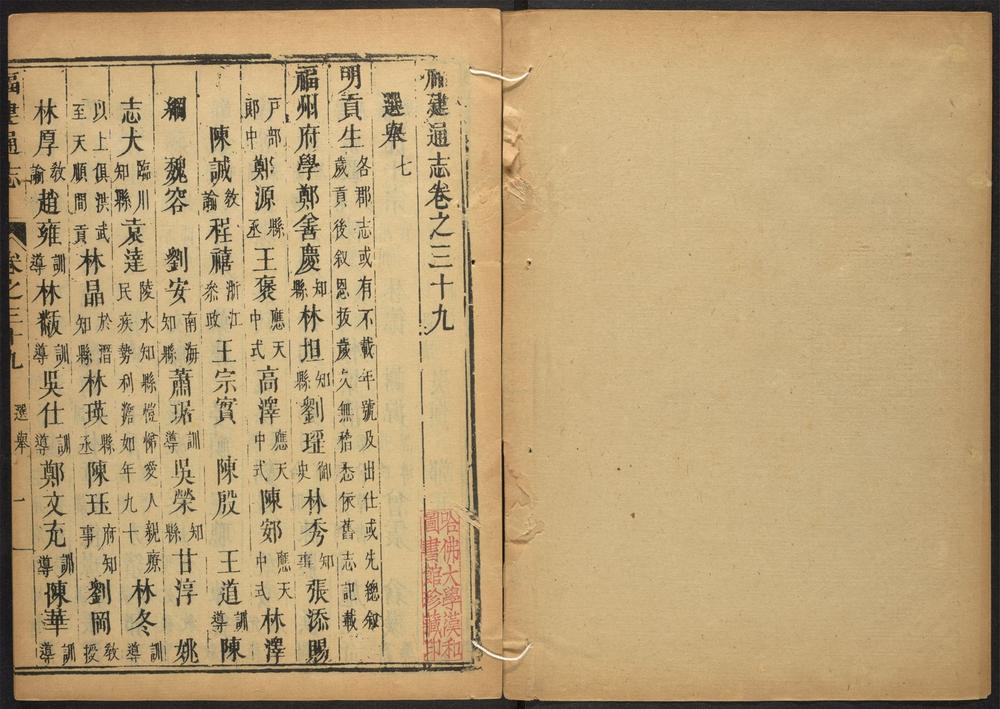 福建通志卷之三十九
選舉七
明貢生各郡志或有不載年號及出仕或先總叙歲貢後叙恩拔歲久無稽悉依舊志記載
福州府學鄭善慶知縣林坦知縣劉瑶御史林秀知事張添賜
戶部郎中鄭源縣丞王褒應天中式高澤應天中式陳郊應天中式林澤
陳誠教諭程禧浙江叅政王宗實陳殷王道訓導陳
綱魏容劉安南海知縣蕭琚訓導吳榮知縣甘淳姚
志大臨川知縣袁達陵水知縣愷悌愛人親療民疾勢利澹如年九十林冬訓導
以上俱洪武至天順間貢林晶於潛知縣林瑛縣丞陳珏府知事劉岡教授
林厚教諭趙雍訓導林㯋訓導吳仕訓導鄭文充訓導陳華訓導
福建通志卷之三十九選舉一
哈佛大學漢和圖書館珍藏印